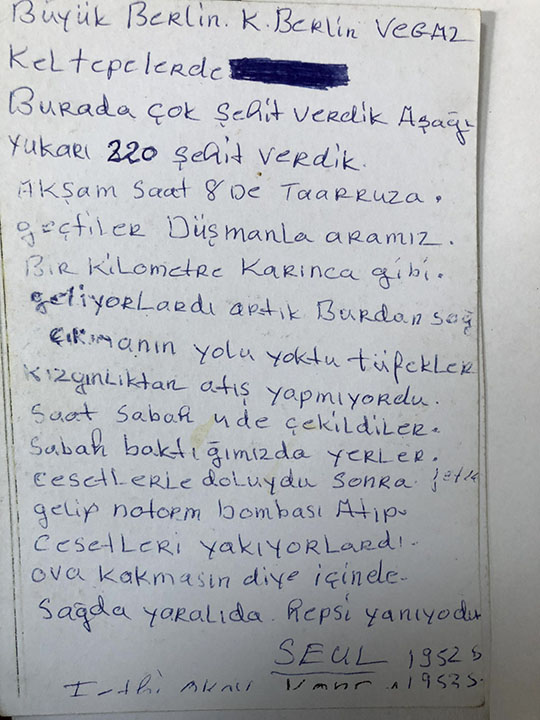 Büyük Berlin. K. Berlin VEGAZ
Keltepelerde
Burada çok şehit verdik Aşağı
Yukarı 220 şehit verdik.
Akşam saat 8 De Taarruza.
geçtiler Düşmanla aramız.
Bir Kilometre Karınca gibi.
geliyorlardı artık Burdan sağ
çıkmanın yolu yoktu tüfekler
Kızgınlıktan atış yapmıyordu.
Saat Sabah 4de çekildiler.
Sabah baktığımızda yerler.
cesetlerle doluydu sonra
gelip notorm bombası Atıp.
Cesetleri yakıyorlardı.
ova kokmasin diye içinde.
Sağda yaralıda. Repsi yanıyodu
SEUL 1952 s
1953 s.